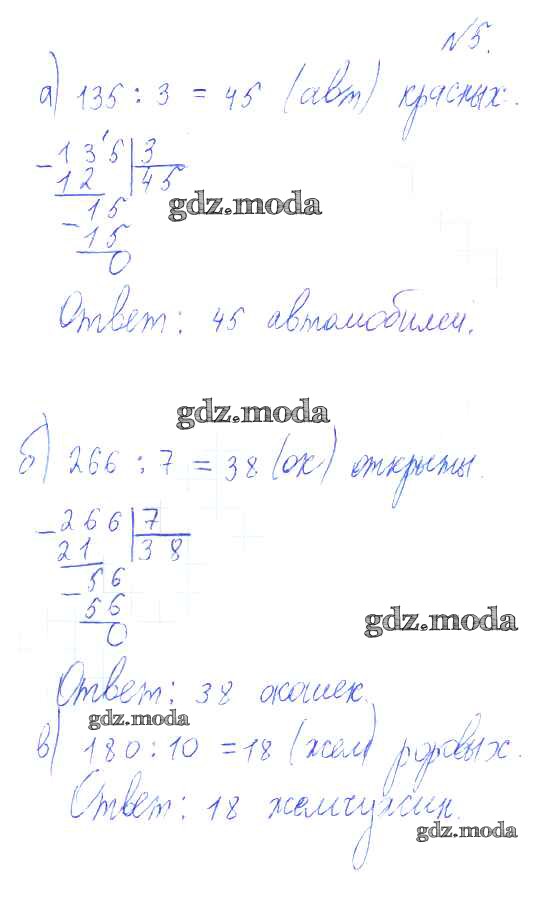 №5.
а) 135 : 3 = 45 (авт) красных.
- 135 | 3
12 | 45
- 15
15
0
gdz.moda
Ответ: 45 автомобилей.
gdz.moda
б) 266 : 7 = 38 (ок) открыты.
- 266 | 7
21 | 38
- 56
56
0
gdz.moda
Ответ: 38 окошек.
gdz.moda
в) 180 : 10 = 18 (жем) розовых.
Ответ: 18 жемчужин.
gdz.moda